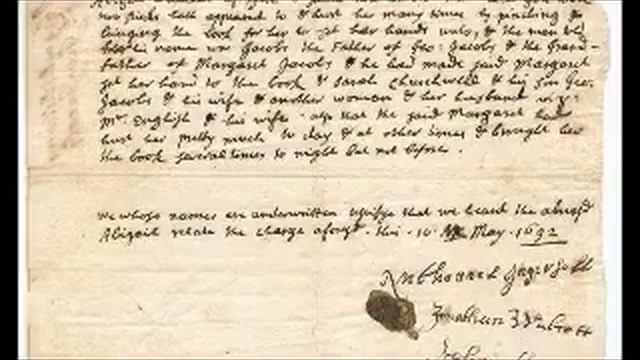 two sticks hath appeared to & hurt her many times by pinching &
bringing the book for her to set her hand unto, & the man told
her his name was Jacobs the Father of Geo: Jacobs & the Grand-
father of Margaret Jacobs & he had made said Margaret
set her hand to the book & Sarah Churchwell & his son Geo.
Jacobs & his wife & another woman & her husband viz:
Mr. English & his wife. also that the said Margaret had
hurt her pretty much to day & at other times & brought her
the book several times to night but not before.
we whose names are underwritten testifye that we heard the abovesd
Abigail relate the charge aforesd. this 10 May. 1692
Nathaneel Ingersoll
Jonathan Walcott